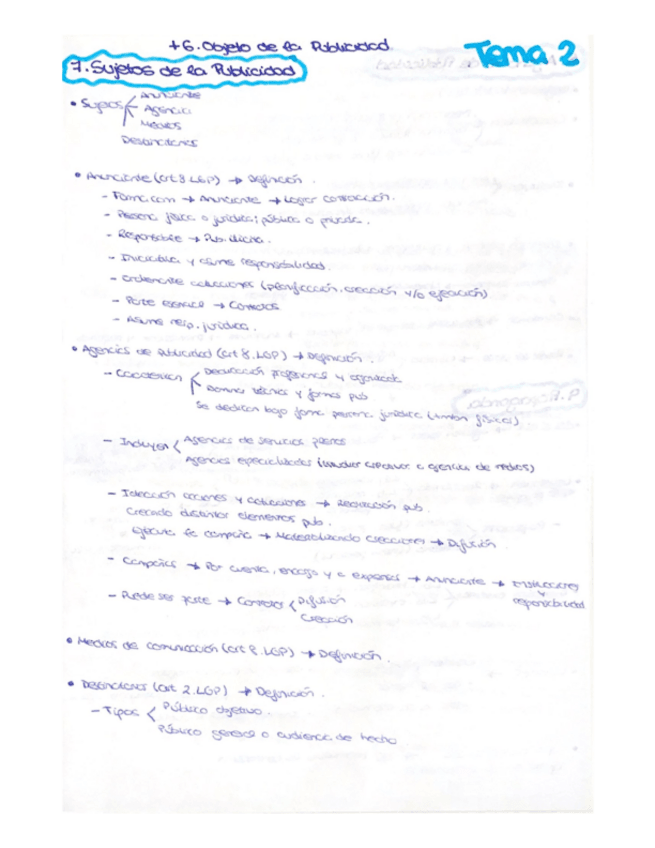 +6. Objeto de la Publicidad
Tema 2
7. Sujetos de la Publicidad
• Sujetos
Anunciante
Agencia
Medios
Destinatarios
• Anunciante (art 8 LGP) → Definición.
- Forma com → Anunciante → Lograr contratación.
- Persona física o jurídica; pública o privada.
- Responsable → Pub. ilícita.
- Iniciativa y asume responsabilidad.
- Ordenante actuaciones (planificación, creación y/o ejecución)
- Parte esencial → Contratos
- Asume resp. jurídica.
• Agencias de Publicidad (art 8. LGP) → Definición.
- Características
Dedicación profesional y organizada
Domina técnica y formas pub
Se dedican bajo forma persona jurídica (también físicas)
- Incluyen
Agencias de servicios plenos
Agencias especializadas (estudios creativos o agencias de medios)
- Ideación acciones y actuaciones → Realización pub.
Creando distintos elementos pub.
Ejecuta la campaña → Materializando creaciones → Difusión.
- Campañas → Por cuenta, encargo y a expensas → Anunciante → instrucciones
y
responsabilidad
- Puede ser parte → Contratos
Difusión
Creación
• Medios de comunicación (art 8. LGP) → Definición.
• Destinatarios (art 2. LGP) → Definición.
- Tipos
Público objetivo.
Público general o audiencia de hecho